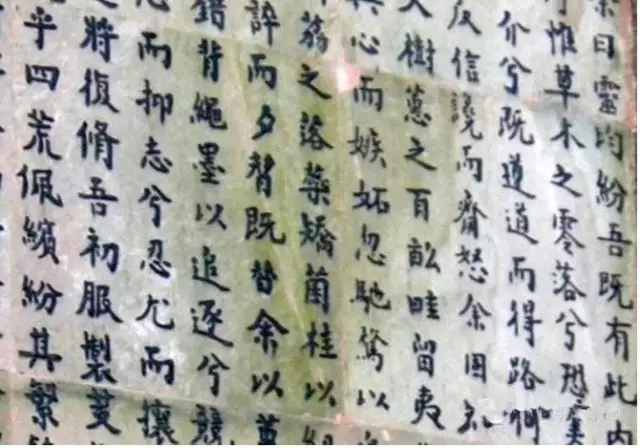 余曰靈均紛吾既有此内
惟草木之零落兮恐美
介兮既遵道而得路何
反信讒而齌怒余固知
樹蕙之百畝畦留夷
心而嫉妒忽馳騖以
荔之落蘂矯菌桂以
誶而夕替既替余以蕙
錯背繩墨以追逐兮競
而抑志兮忍尤而攘
將復修吾初服製芰
乎四荒佩繽紛其繁